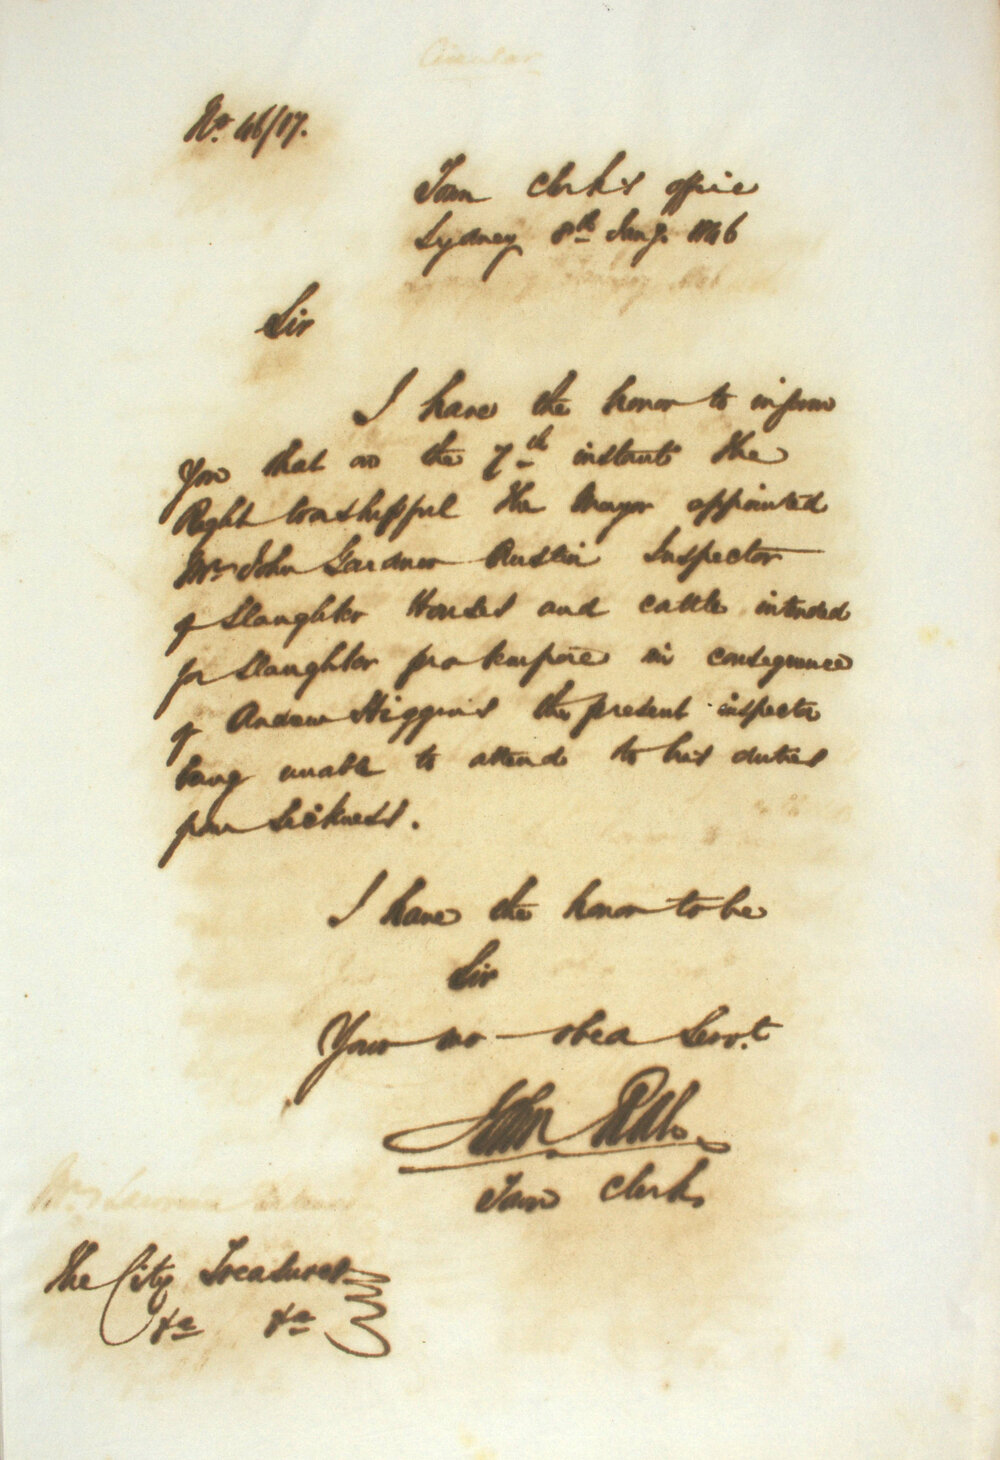 Circular
No. 46/17.
Town Clerk's office
Sydney 8th Jany. 1846
Sir
I have the honor to inform
You that on the 7th instant the
Right Worshipful The Mayor appointed
Mr John Gardner Austin Inspector
of Slaughter Houses and cattle intended
for Slaughter pro tempore in consequence
of Andrew Higgins the present inspector
being unable to attend to his duties
from Sickness.
I have the honor to be
Sir
Your mo obed Servt.
John Rule
Town Clerk
The City Treasurer
&c &c